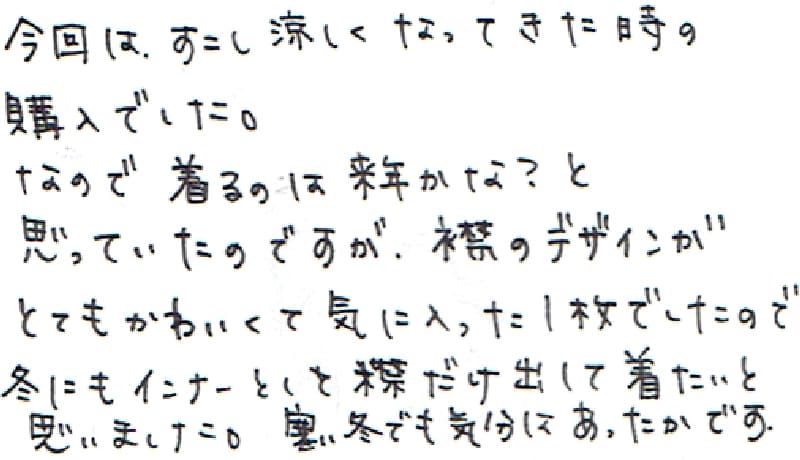 今回は、すこし涼しくなってきた時の
購入でした。
なので着るのは来年かな?と
思っていたのですが、襟のデザインが
とてもかわいくて気に入った1枚でしたので
冬にもインナーとして襟だけ出して着たいと
思いました。寒い冬でも気分はあったかです。